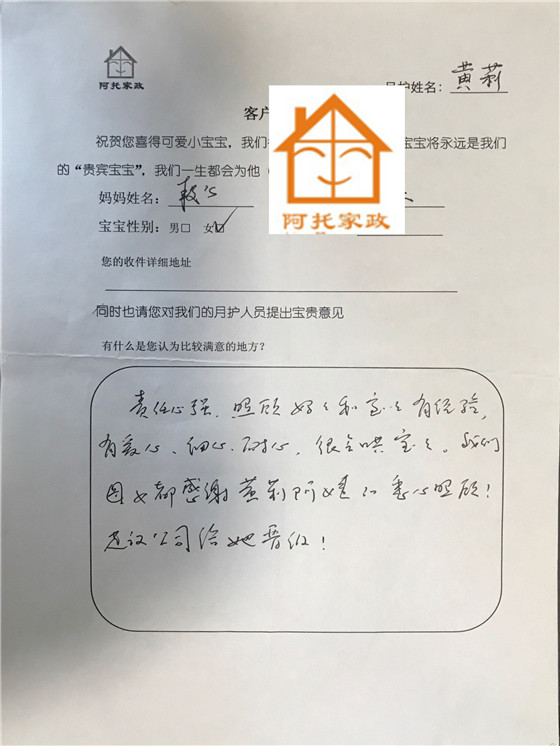 阿托家政
月护姓名：黄莉
客户
阿托家政
祝贺您喜得可爱小宝宝，我们 宝宝将永远是我们
的“贵宾宝宝”，我们一生都会为他（
妈妈姓名：
宝宝性别：男□ 女☑
您的收件详细地址
同时也请您对我们的月护人员提出宝贵意见
有什么是您认为比较满意的地方？
责任心强，照顾妈妈和宝宝有经验，
有爱心、细心、耐心，很会哄宝宝。我们
母女都感谢黄莉阿姨的悉心照顾！
建议公司给她晋级！